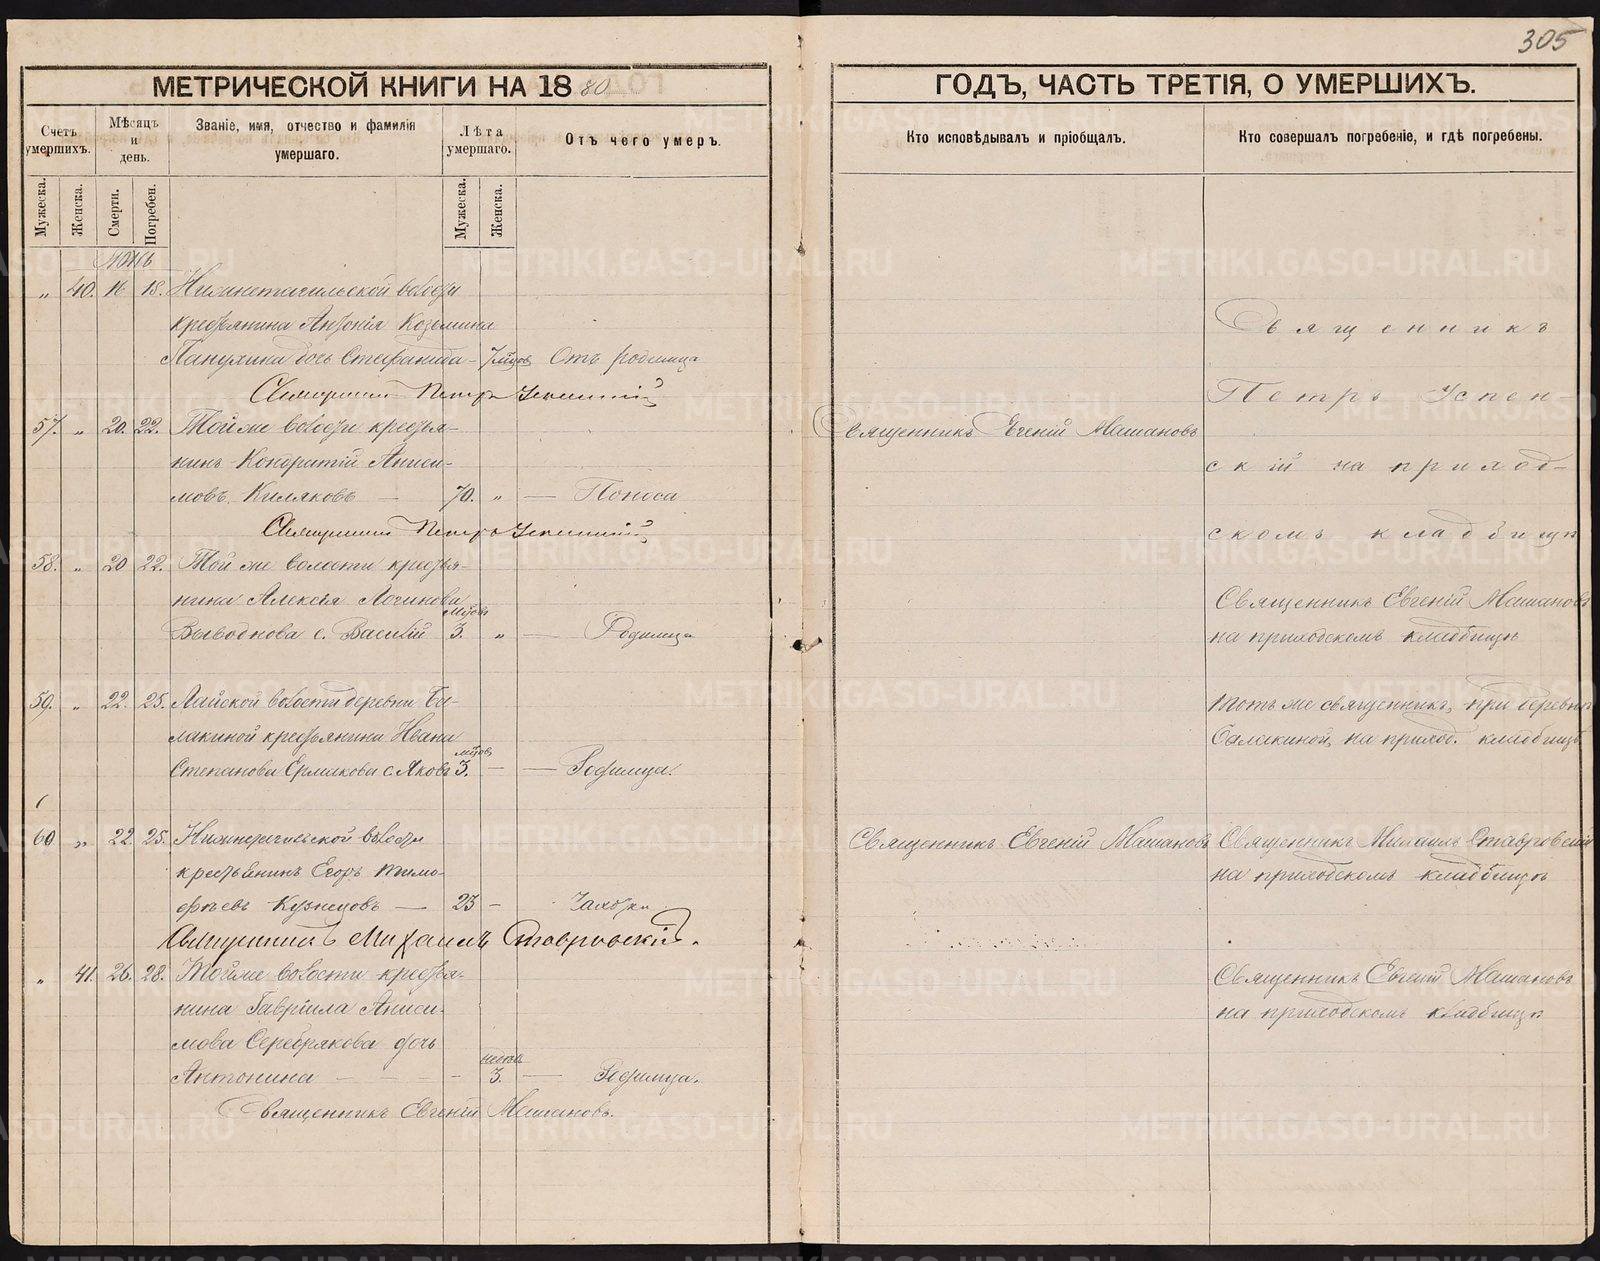 305
МЕТРИЧЕСКОЙ КНИГИ НА 1880
Счетъ умершихъ.
Мѣсяцъ и день.
Званіе, имя, отчество и фамилія умершаго.
Лѣта умершаго.
Отъ чего умеръ.
Мужеска.
Женска.
Смерти.
Погребен.
Мужеска.
Женска.
Июнь
„ 40. 16 18. Нижнетагильской волости
крестьянина Антонія Козьмина
дочь Стефанида - 7 мцов Отъ родимца
Священникъ Петръ Успенскій
57. „ 20. 22. Той же волости крестья-
нинъ Кондратій Аниси-
мовъ Киляковъ — 70. „ — Поноса
Священникъ Петръ Успенскій
58. „ 20 22. Той же волости крестья-
нина Алексія Логинова
Выводнова с. Василій мцовъ 3. „ — Родимца
59. „ 22. 25. Лайской волости деревни Ба-
лакиной крестьянина Ивана
Степанова Ермакова с. Яковъ мцовъ 3. — — Родимца.
60 „ 22. 25. Нижнетагильской волости
крестьянинъ Егоръ Тимо-
феевъ Кузнецовъ — 23 - Чахотки
Священникъ Михаилъ Ставровскій.
„ 41. 26. 28. Той же волости крестья-
нина Гавріила Аниси-
мова Серебрякова дочь
Антонина - - - 3. — Родимца.
Священникъ Евгеній Машановъ.
ГОДЪ, ЧАСТЬ ТРЕТІЯ, О УМЕРШИХЪ.
Кто исповѣдывалъ и пріобщалъ.
Кто совершалъ погребеніе, и гдѣ погребены.
Священникъ
Петръ Успен-
Священникъ Евгеній Машановъ
скій на приход-
скомъ кладбищѣ
Священникъ Евгеній Машановъ
на приходскомъ кладбищѣ
Тотъ же священникъ, при деревнѣ
Балакиной, на приход. кладбищѣ
Священникъ Евгеній Машановъ
Священникъ Михаилъ Ставровскій
на приходскомъ кладбищѣ
Священникъ Евгеній Машановъ
на приходскомъ кладбищѣ
METRIKI.GASO-URAL.RU